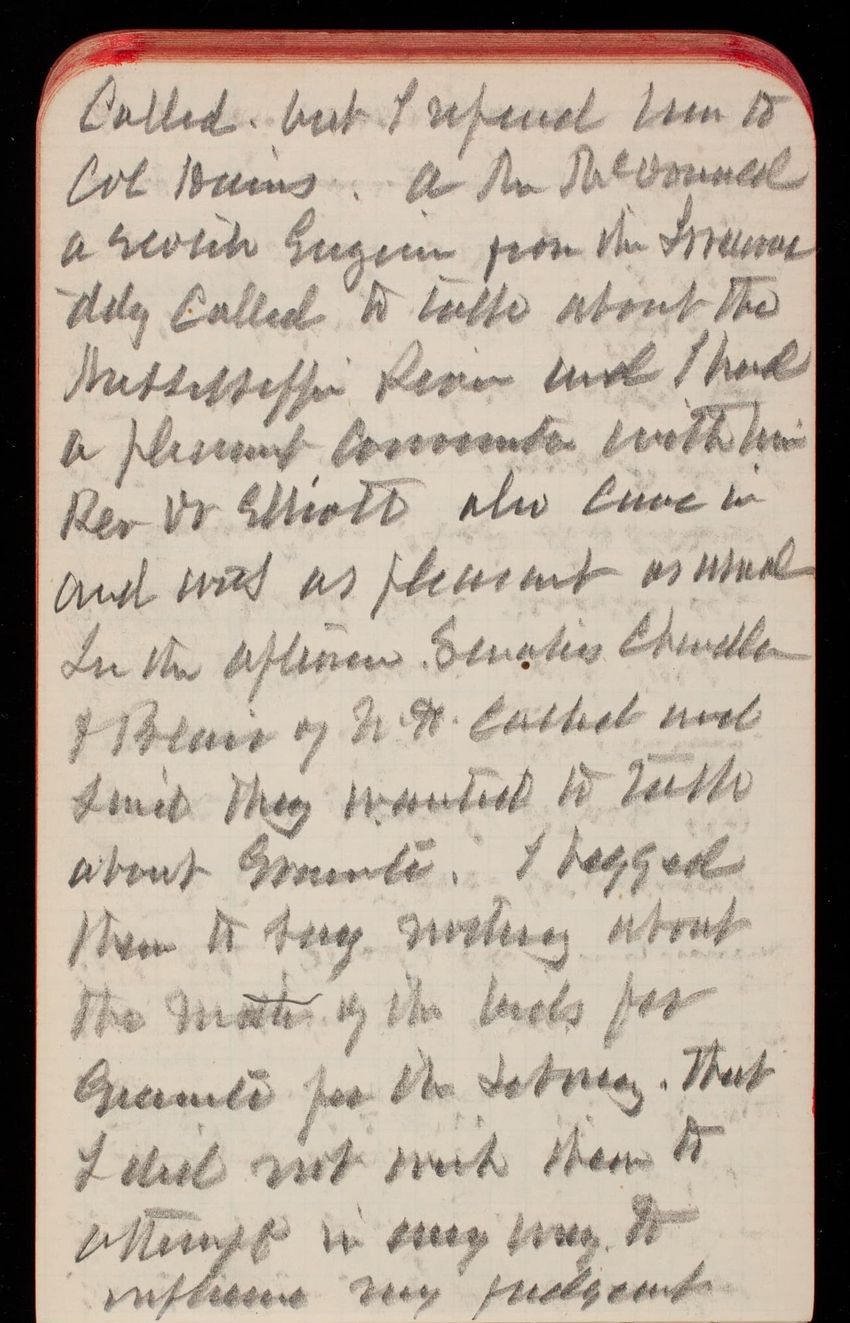 Called. but I refered him to
Col Hains. A Mr McDonald
a Scotch Engineer from the
called to talk about the
Mississippi River and I had
a pleasant conversation with him
Rev Dr Elliott also came in
and was as pleasant as usual
In the afternoon. Senators Chandler
& Blair of N.H. Called and
said they wanted to talk
about Granite. I begged
them to say nothing about
the matter of the bids for
Granite for the Library. That
I did not wish them to
attempt in any way to
influence my judgment